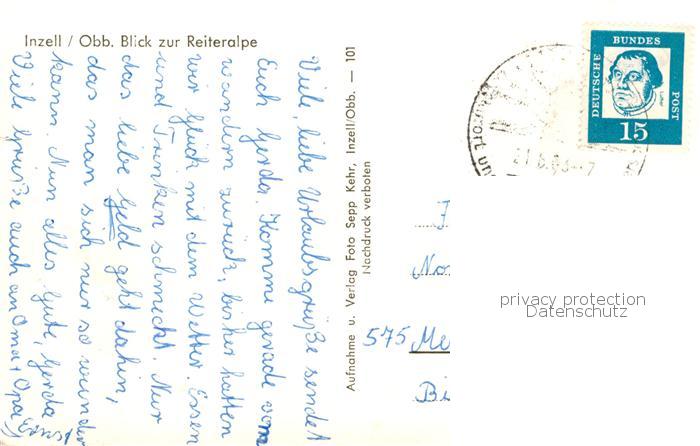 Inzell / Obb. Blick zur Reiteralpe
Viele, liebe Urlaubsgrüße sendet
Euch Gerda. Komme gerade vom
wandern zurück, bisher hatten
wir Glück mit dem Wetter. Essen
und Trinken schmeckt. Nur
das liebe Geld geht dahin,
das man sich nur so wundern
kann. Nun alles Gute, Gerda
Viele Grüße auch an Oma + Opa
Ernst
Aufnahme u. Verlag Foto Sepp Kehr, Inzell/Obb. — 101
Nachdruck verboten
DEUTSCHE
BUNDES
POST
Luther
15
No
575 Me
Bi
privacy protection
Datenschutz